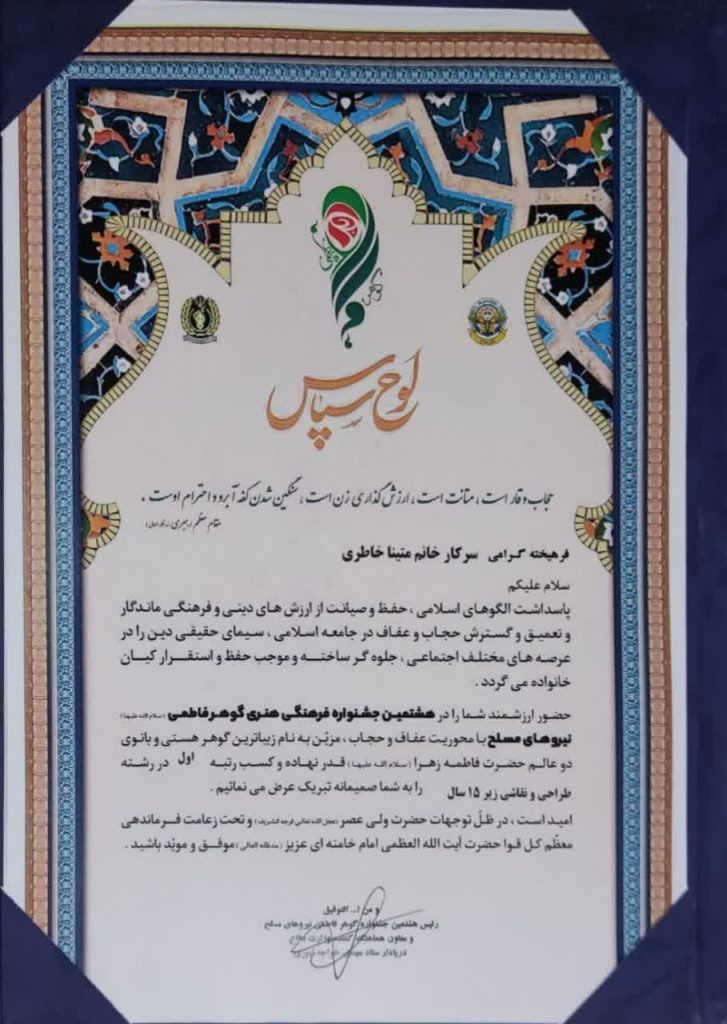 لوح سپاس
حجاب وقار است ، متانت است ، ارزش گذاری زن است ، سنگین شدن کفه آبرو و احترام اوست .
مقام معظم رهبری (مدظله العالی)
فرهیخته گرامی سرکار خانم متینا خاطری
سلام علیکم
پاسداشت الگوهای اسلامی ، حفظ و صیانت از ارزش های دینی و فرهنگی ماندگار
و تعمیق و گسترش حجاب و عفاف در جامعه اسلامی ، سیمای حقیقی دین را در
عرصه های مختلف اجتماعی ، جلوه گر ساخته و موجب حفظ و استقرار کیان
خانواده می گردد .
حضور ارزشمند شما را در هشتمین جشنواره فرهنگی هنری گوهر فاطمی (سلام الله علیها)
نیروهای مسلح با محوریت عفاف و حجاب ، مزیّن به نام زیباترین گوهر هستی و بانوی
دو عالم حضرت فاطمه زهرا (سلام الله علیها) قدر نهاده و کسب رتبه اول در رشته
طراحی و نقاشی زیر ۱۵ سال را به شما صمیمانه تبریک عرض می نمائیم .
امید است ، در ظلّ توجهات حضرت ولی عصر (عجل الله تعالی فرجه الشریف) و تحت زعامت فرماندهی
معظّم کل قوا حضرت آیت الله العظمی امام خامنه ای عزیز (مدظله العالی) موفق و موّید باشید .
و من ا... التوفیق
رئیس هشتمین جشنواره گوهر فاطمی نیروهای مسلح
و معاون هماهنگ کننده وزارت دفاع
دریادار ستاد